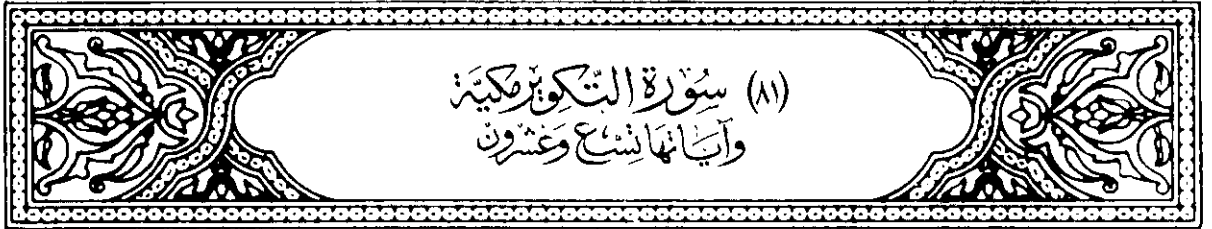 (٨١) سُورَة التَّكويْر مَكيَّة
وَآيَاتهَا تِسْع وَعشْرُونَ